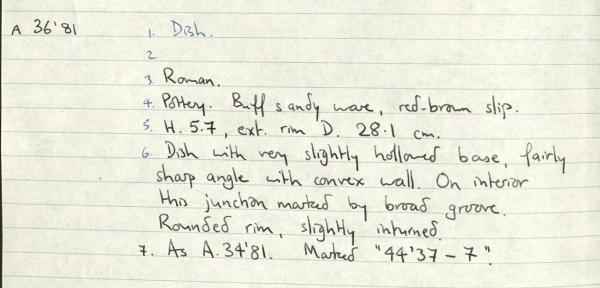 A 36'81 1. Dish.
2
3. Roman.
4. Pottery. Buff sandy ware, red-brown slip.
5. H. 5.7, ext. rim D. 28.1 cm.
6. Dish with very slightly hollowed base, fairly
sharp angle with convex wall. On interior
this junction marked by broad groove.
Rounded rim, slightly inturned.
7. As A.34'81. Marked "44'37-7".